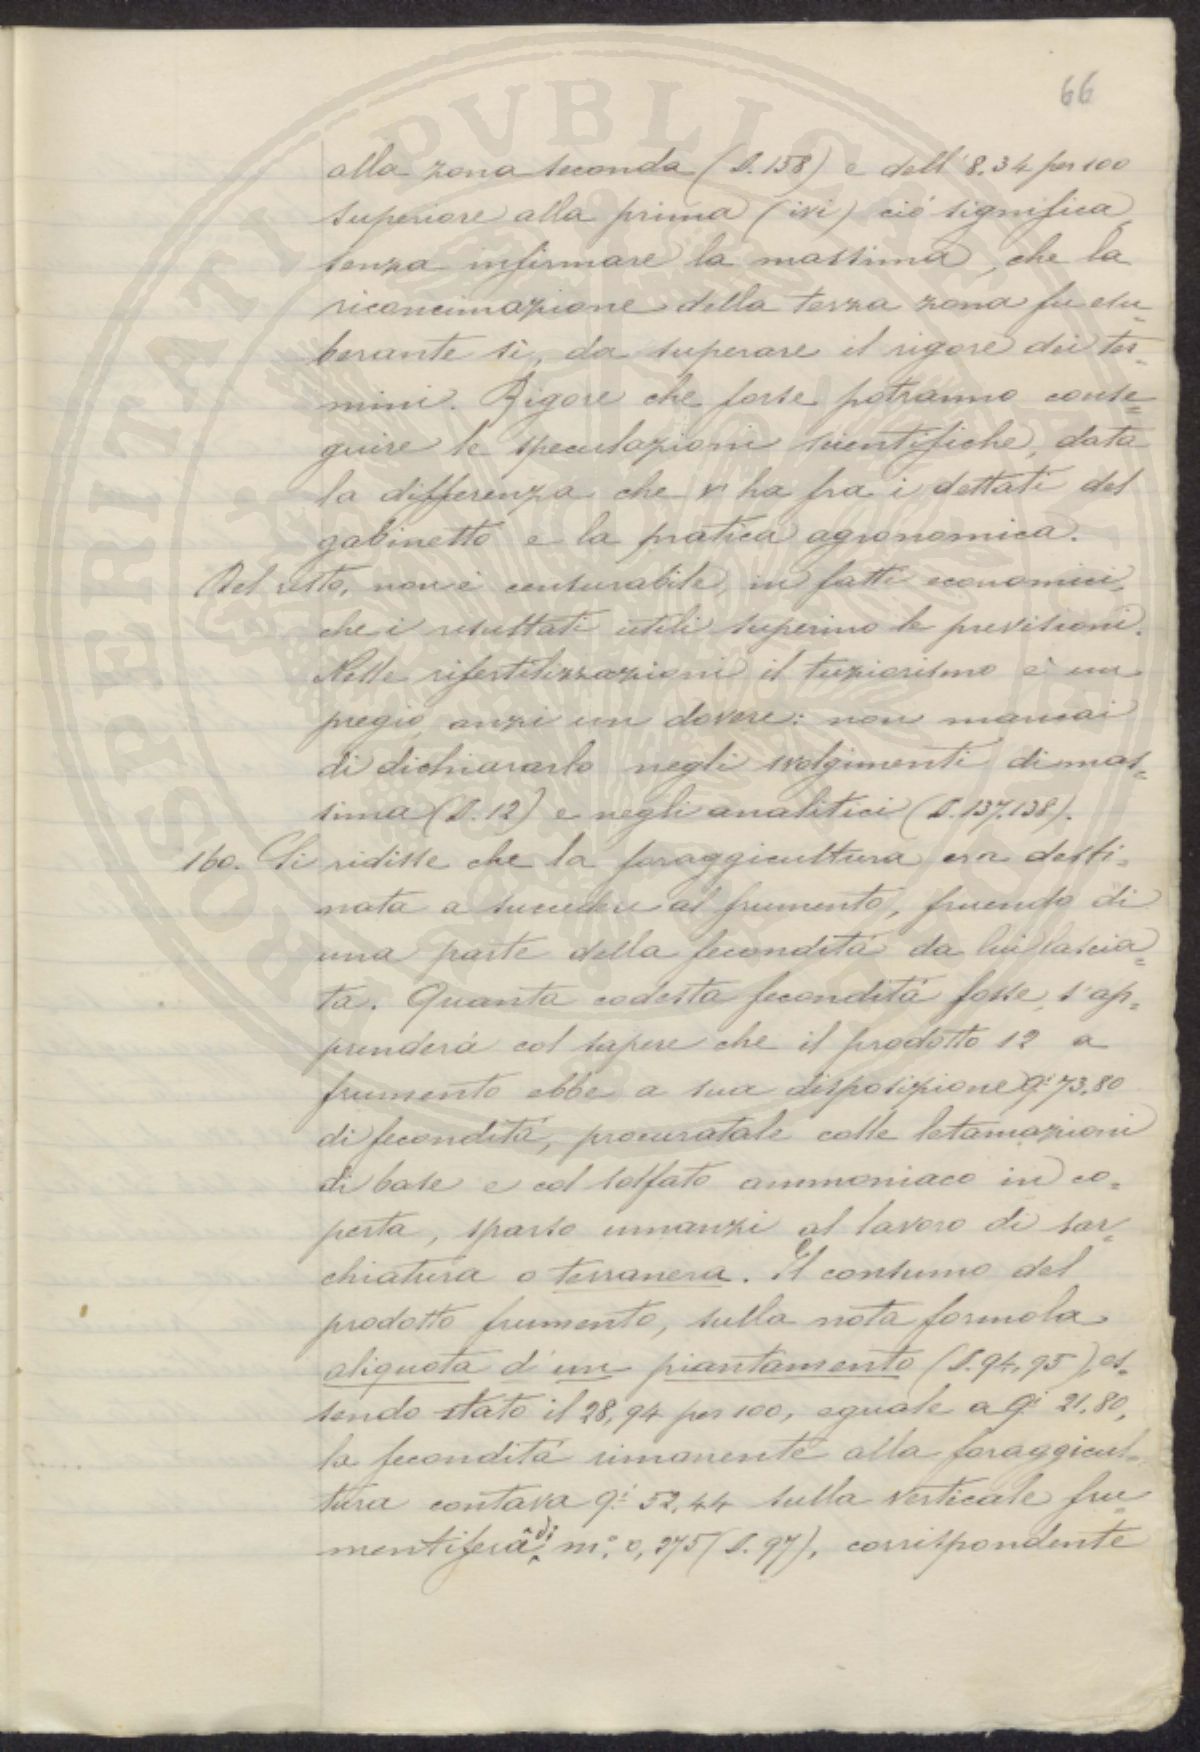 66
alla zona seconda (§. 158) e dell'8.34 per 100
superiore alla prima (ivi) ciò significa,
senza infirmare la massima, che la
riconcimazione della terza zona fu esu-
berante sì, da superare il rigore dei ter-
mini. Rigore che forse potranno conse-
guire le speculazioni scientifiche, data
la differenza che v'ha fra i dettati del
gabinetto e la pratica agronomica.
Del resto, non è censurabile, in fatti economici,
che i resultati utili superino le previsioni.
Nelle rifertilizzazioni il tuziorismo è un
pregio, anzi un dovere: non mancai
di dichiararlo negli svolgimenti di mas-
sima (§. 12) e negli analitici (§. 137.138).
160. Si ridisse che la foraggicultura era desti-
nata a succedere al frumento, fruendo di
una parte della fecondità da lui lascia-
ta. Quanta codesta fecondità fosse, s'ap-
prenderà col sapere che il prodotto 12 a
frumento ebbe a sua disposizione q.i 73.80
di fecondità, procuratale colle letamazioni
di base e col solfato ammoniaco in co-
perta, sparso innanzi al lavoro di sar-
chiatura o terranera. Il consumo del
prodotto frumento, sulla nota formola
aliquota d'un piantamento (§. 94, 95), es-
sendo stato il 28,94 per 100, eguale a q.i 21.80,
la fecondità rimanente alla foraggicul-
tura contava q.i 52,44 sulla verticale fru-
mentifera di m.o 0,275 (§. 97), corrispondente
PROSPERITATI PVBLICAE